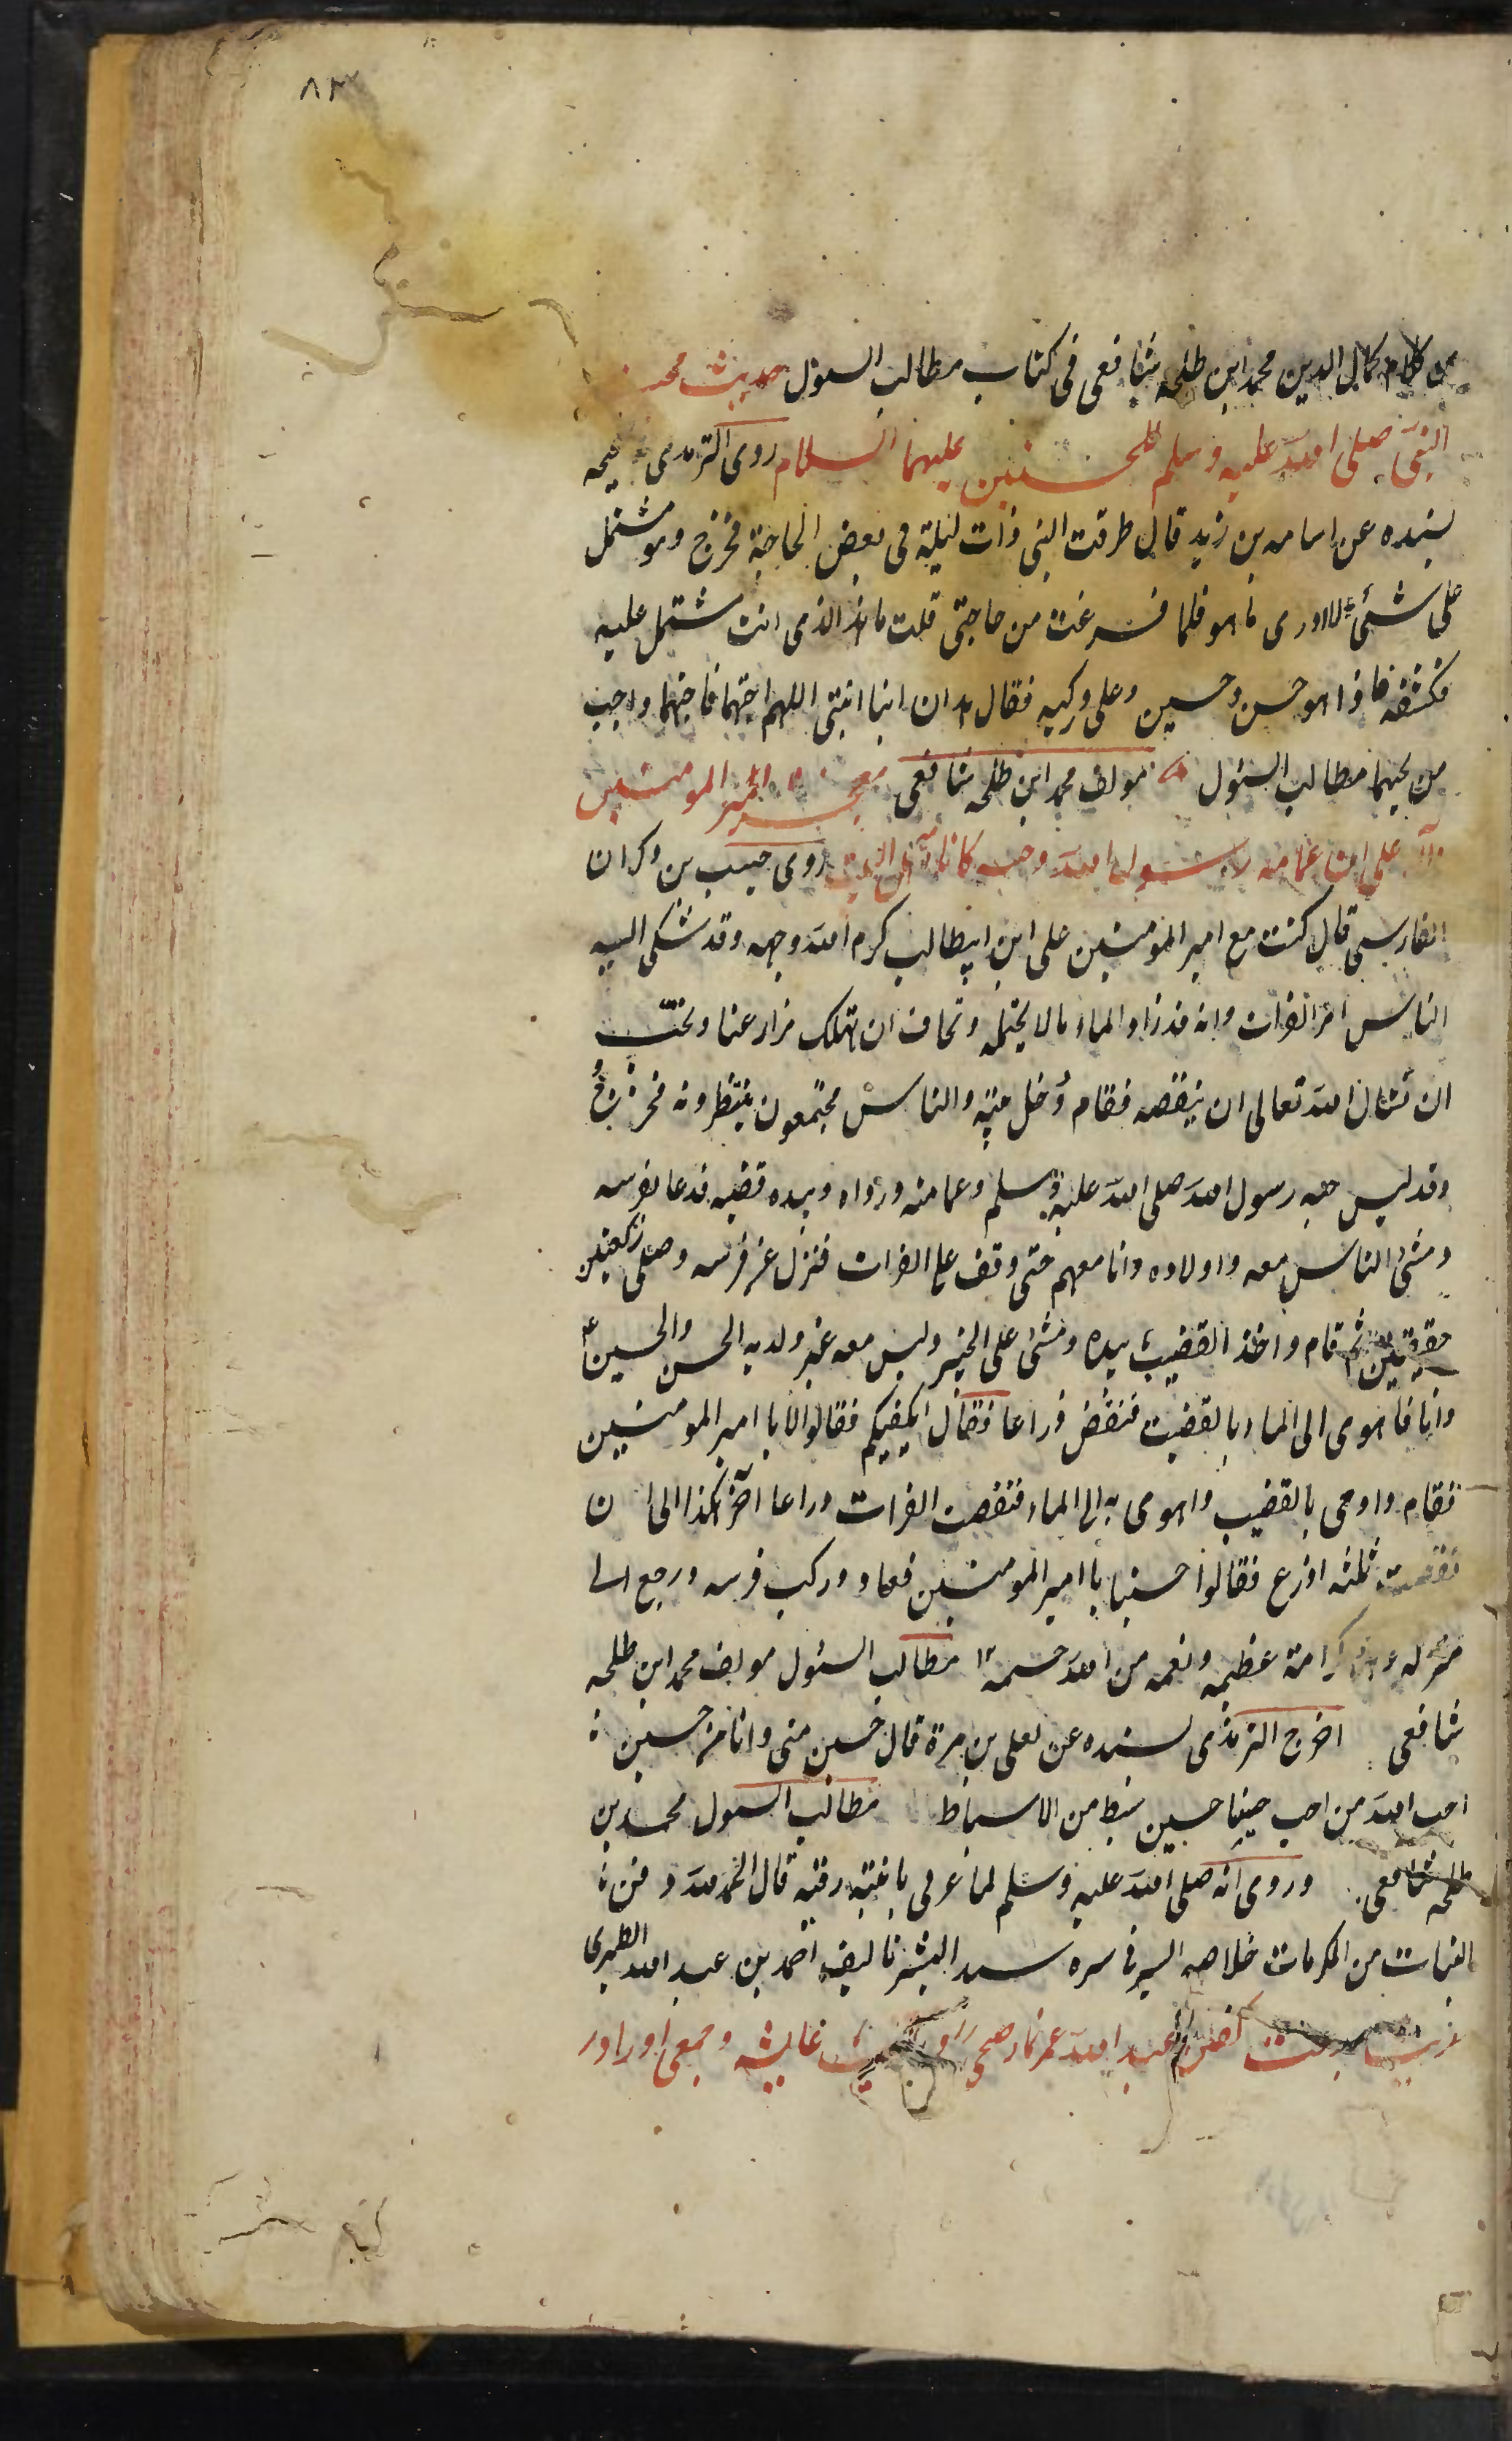 ٨٣
من كلام كمال الدين محمد ابن طلحه شافعى فى كتاب مطالب السئول حديث محمد
النبى صلى الله عليه وسلم للحسنين عليهما السلام روى الترمدى
بسنده عن اسامه بن زيد قال طرقت النبى ذات ليلة فى بعض الحاجة فخرج وهو مشتمل
على شئ لا ادرى ما هو فلما فرغت من حاجتى قلت ما هذا الذى انت مشتمل عليه
فكشفه فاذا هو حسن وحسين وعلى وركيه فقال هذان ابنا ابنتى اللهم احبهما فاحبهما واحب
من يحبهما مطالب السئول مولف محمد ابن طلحه شافعى امير المومنين
على ابن عمامه رسول الله روى حبيب بن ذكران
الفارسى قال كنت مع امير المومنين على ابن ابيطالب كرم الله وجهه وقد شكى اليه
الناس امر الفرات وانه قد زاد الماء مالا يحتمله ونخاف ان تهلك مزارعنا ونحب
ان تسال الله تعالى ان ينقصه فقام ودخل بيته والناس مجتمعون ينتظرونه فخرج
وقد لبس جبه رسول الله صلى الله عليه وسلم وعمامته ورداه وبيده قضيبه فدعا بفرسه
ومشى الناس معه واولاده وانا معهم حتى وقف على الفرات فنزل عن فرسه وصلى ركعتين
خفيفتين ثم قام واخذ القضيب بيده ومشى على الجسر وليس معه غير ولديه الحسن والحسين ع
وانا فاهوى الى الماء بالقضيب فنقص ذراعا فقال ايكفيكم فقالوا لا يا امير المومنين
فقام واومى بالقضيب واهوى به الى الماء فنقصت الفرات ذراعا آخر هكذا الى ان
نقصت ثلثه اذرع فقالوا حسبنا يا امير المومنين فعاد وركب فرسه ورجع الى
منزله وهذه كرامة عظيمه ونعمه من الله جسيمه مطالب السئول مولف محمد ابن طلحه
شافعى اخرج الترمذى بسنده عن يعلى بن مرة قال حسين منى وانا من حسين
احب الله من احب حسينا حسين سبط من الاسباط مطالب السول محمد بن
طلحه شافعى وروى انه صلى الله عليه وسلم لما عزى بابنته رقيه قال الحمد لله دفن
البنات من المكرمات خلاصه السير فى سيره سيد البشر تاليف احمد بن عبد الله الطبرى
عبد الله عمر عايشه وجمعى